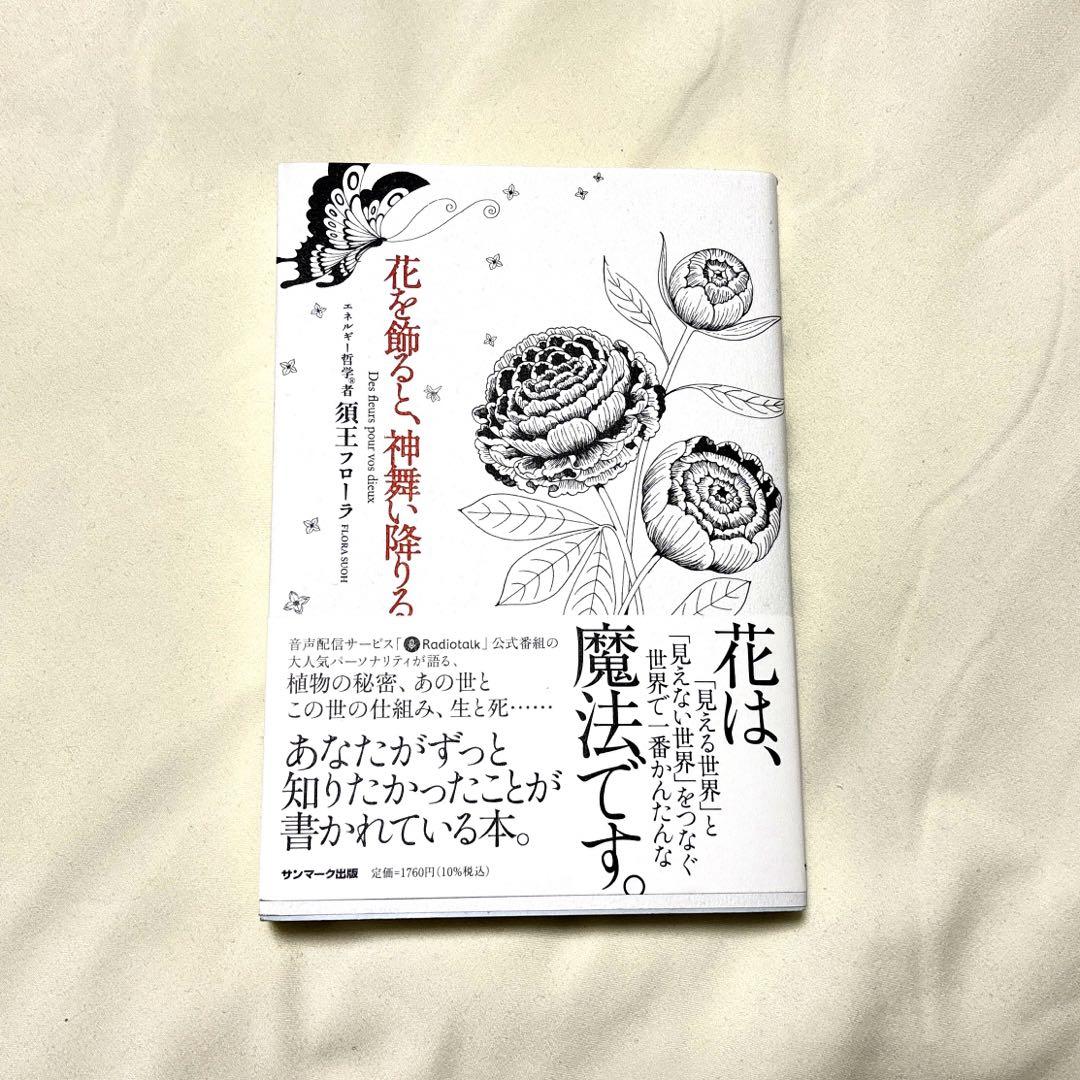 花を飾ると、神舞い降りる
Des fleurs pour vos dieux
エネルギー哲学®者 須王フローラ FLORA SUOH
花は、
「見える世界」と
「見えない世界」をつなぐ
世界で一番かんたんな
魔法です。
音声配信サービス「Radiotalk」公式番組の
大人気パーソナリティが語る、
植物の秘密、あの世と
この世の仕組み、生と死……
あなたがずっと
知りたかったことが
書かれている本。
サンマーク出版 定価=1760円(10%税込)